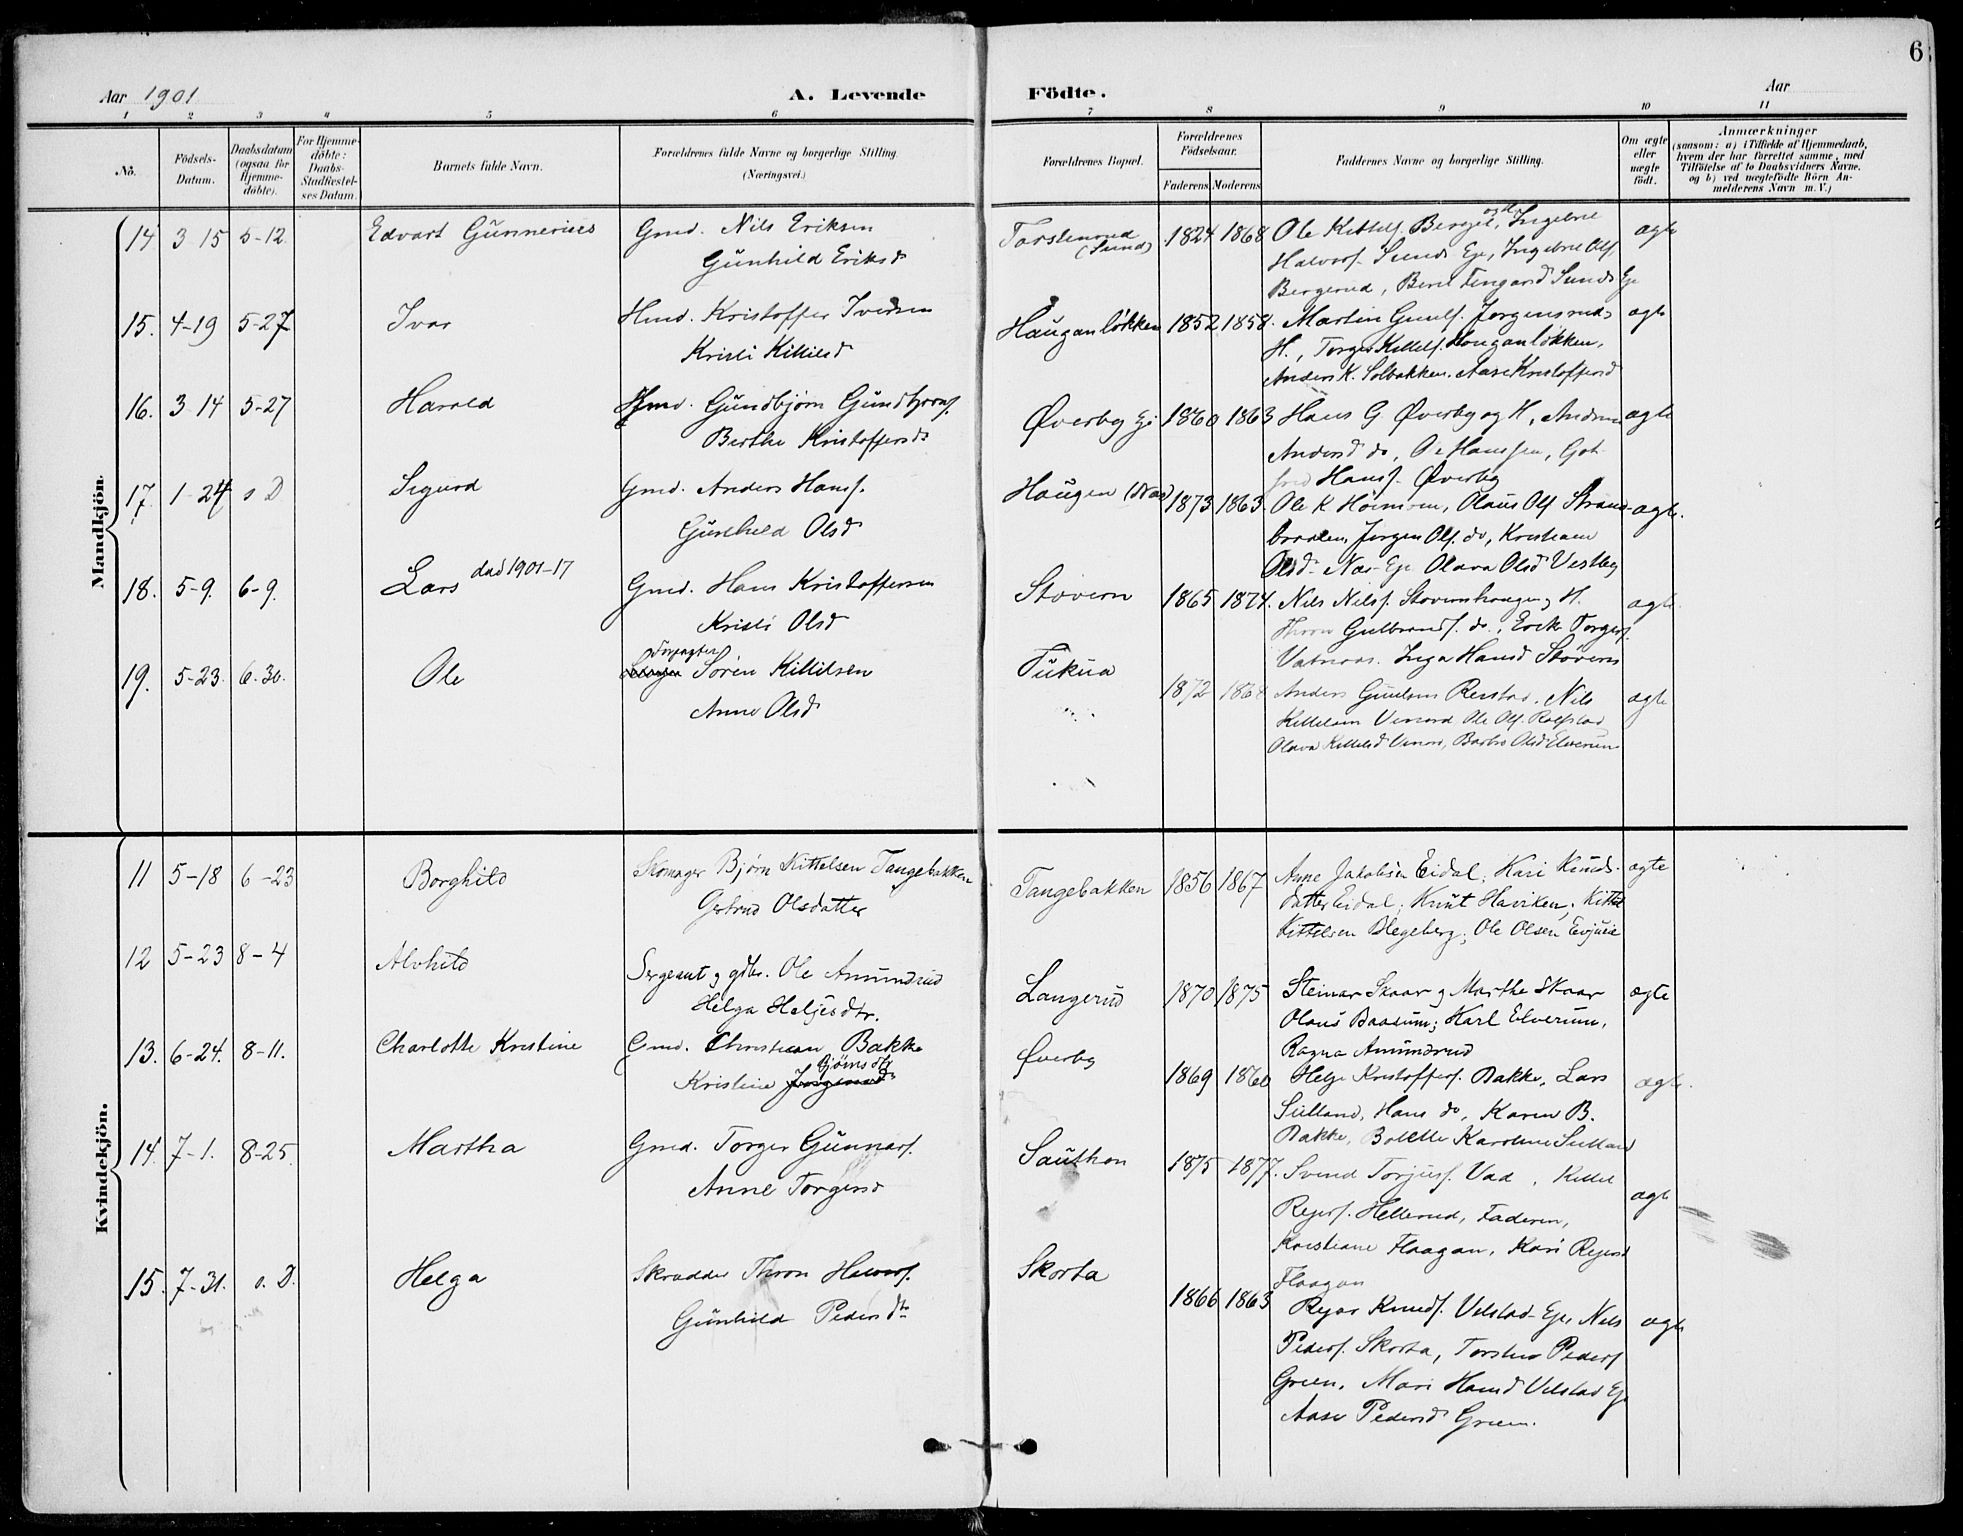 6
Aar 1901
A. Levende Födte.
Aar
1 2 3 4 5 6 7 8 9 10 11
No.
Födsels-Datum.
Daabsdatum (ogsaa for Hjemme-döbte).
For Hjemme-döbte: Daabs-Stadfæstel-ses Datum.
Barnets fulde Navn.
Forældrenes fulde Navne og borgerlige Stilling. (Næringsvei.)
Forældrenes Bopæl.
Forældrenes Födselsaar.
Faderens. Moderens.
Faddernes Navne og borgerlige Stilling.
Om ægte eller uægte födt.
Anmærkninger
(saasom: a) i Tilfælde af Hjemmedaab, hvem der har forrettet samme, med Tilföielse af to Daabsvidners Navne, og b) ved uægtefödte Börn An-melderens Navn m. V.)
Mandkjön.
14 3 15 5-12 Edvart Gunnerius Gmd. Nils Eriksen
Gunhild Eriksd
Torstenrud (Sund) 1824 1868 Ole Kittelf. Ingebret
Halvorf. Sund Eje, Ingebret Olf.
Bergerud, Berit Sund Eje
ægte
15. 4-19 5-27 Ivar Hmd. Kristoffer Iversen
Kristi Kittilsd
Hauganløkken 1852 1858. Martin Gunlf. Jørgensrud
H., Torger Kittelf. Houganløkken,
Anders K. Solbakken. Aase Kristoffersd
ægte
16. 3 14 5-27 Harald Hmd. Gundbjørn Gundbjørnf.
Berthe Kristoffersd
Øverby Ej 1860 1863 Hans G. Øverby og H, Andrea
Andersd do, Ole Hanssen, Got-
fred Hansf. Øverby
ægte
17. 1-24 s D Sigurd Gmd. Anders Hansf.
Gunhild Olsd
Haugen (Næs) 1873 1863. Ole K Olaus Olf Strand-
braaten, Jørgen Olf. do, Kristiane
Olsd. Næs-Eje Olava Olsd Vestby
ægte.
18. 5-9. 6-9. Lars død 1901-17 Gmd. Hans Kristoffersen
Kristi Olsd
Stovern 1865 1874. Nils Nilsf. Stovernhaugen og H.
Thron Gulbrandf. do., Erik Torgerf.
Vatnaas. Inga Hansd Støvern
ægte
19. 5-23. 6-30. Ole Forpagter Søren Kittilsen
Anne Olsd
Tukua 1872 1868 Anders Gunlams Nils
Kittelsen Ole Olf. Rolfstad
Olava Kittelsd Barbro Olsd Elverum
ægte
Kvindekjön.
11 5-18 6-23 Borghild Skomager Bjørn Kittelsen Tangebakken
Gertrud Olsdatter
Tangebakken 1856 1867 Anne Jakobsen Eidal; Kari Knuds-
datter Eidal; Knut Haviken; Kittel
Kittelsen Blegeberg; Ole Olsen Evjuie
ægte
12 5-23 8-4 Alvhild Sergeant og gdbr. Ole Amundrud
Helga Helgesdtr.
Langerud 1870 1875 Steinar Skaar og Marthe Skaar
Olaus Baasum; Karl Elverum,
Ragna Amundrud
ægte
13. 6-24. 8-11. Charlotte Kristine Gmd. Christian Bakke
Kristine Bjørnsdtr
Øverby 1869 1860 Helge Kristofferf. Bakke, Lars
Sulland, Hans do, Karen B.
Bakke, Bolette Karoline Sulland
ægte.
14. 7-1. 8-25. Martha Gmd. Torger Gunnarf.
Anne Torgersd
Sauthon 1875 1877. Svend Torjusf. Vad, Kittel
Reyerf. Hellerud, Faderen,
Kristiane Flaagan, Kari Reyersd
Flaagan
ægte
15. 7-31. s. D. Helga Skrædder Thron Halvorf.
Gunhild Pedersdtr
Skorta 1866 1863 Reyar Knudf. Velstad-Eje Nils
Pederf. Skorta, Torsten Pederf
Green, Mari Hansd Velstad Ej
Aase Pedersd Green.
ægte